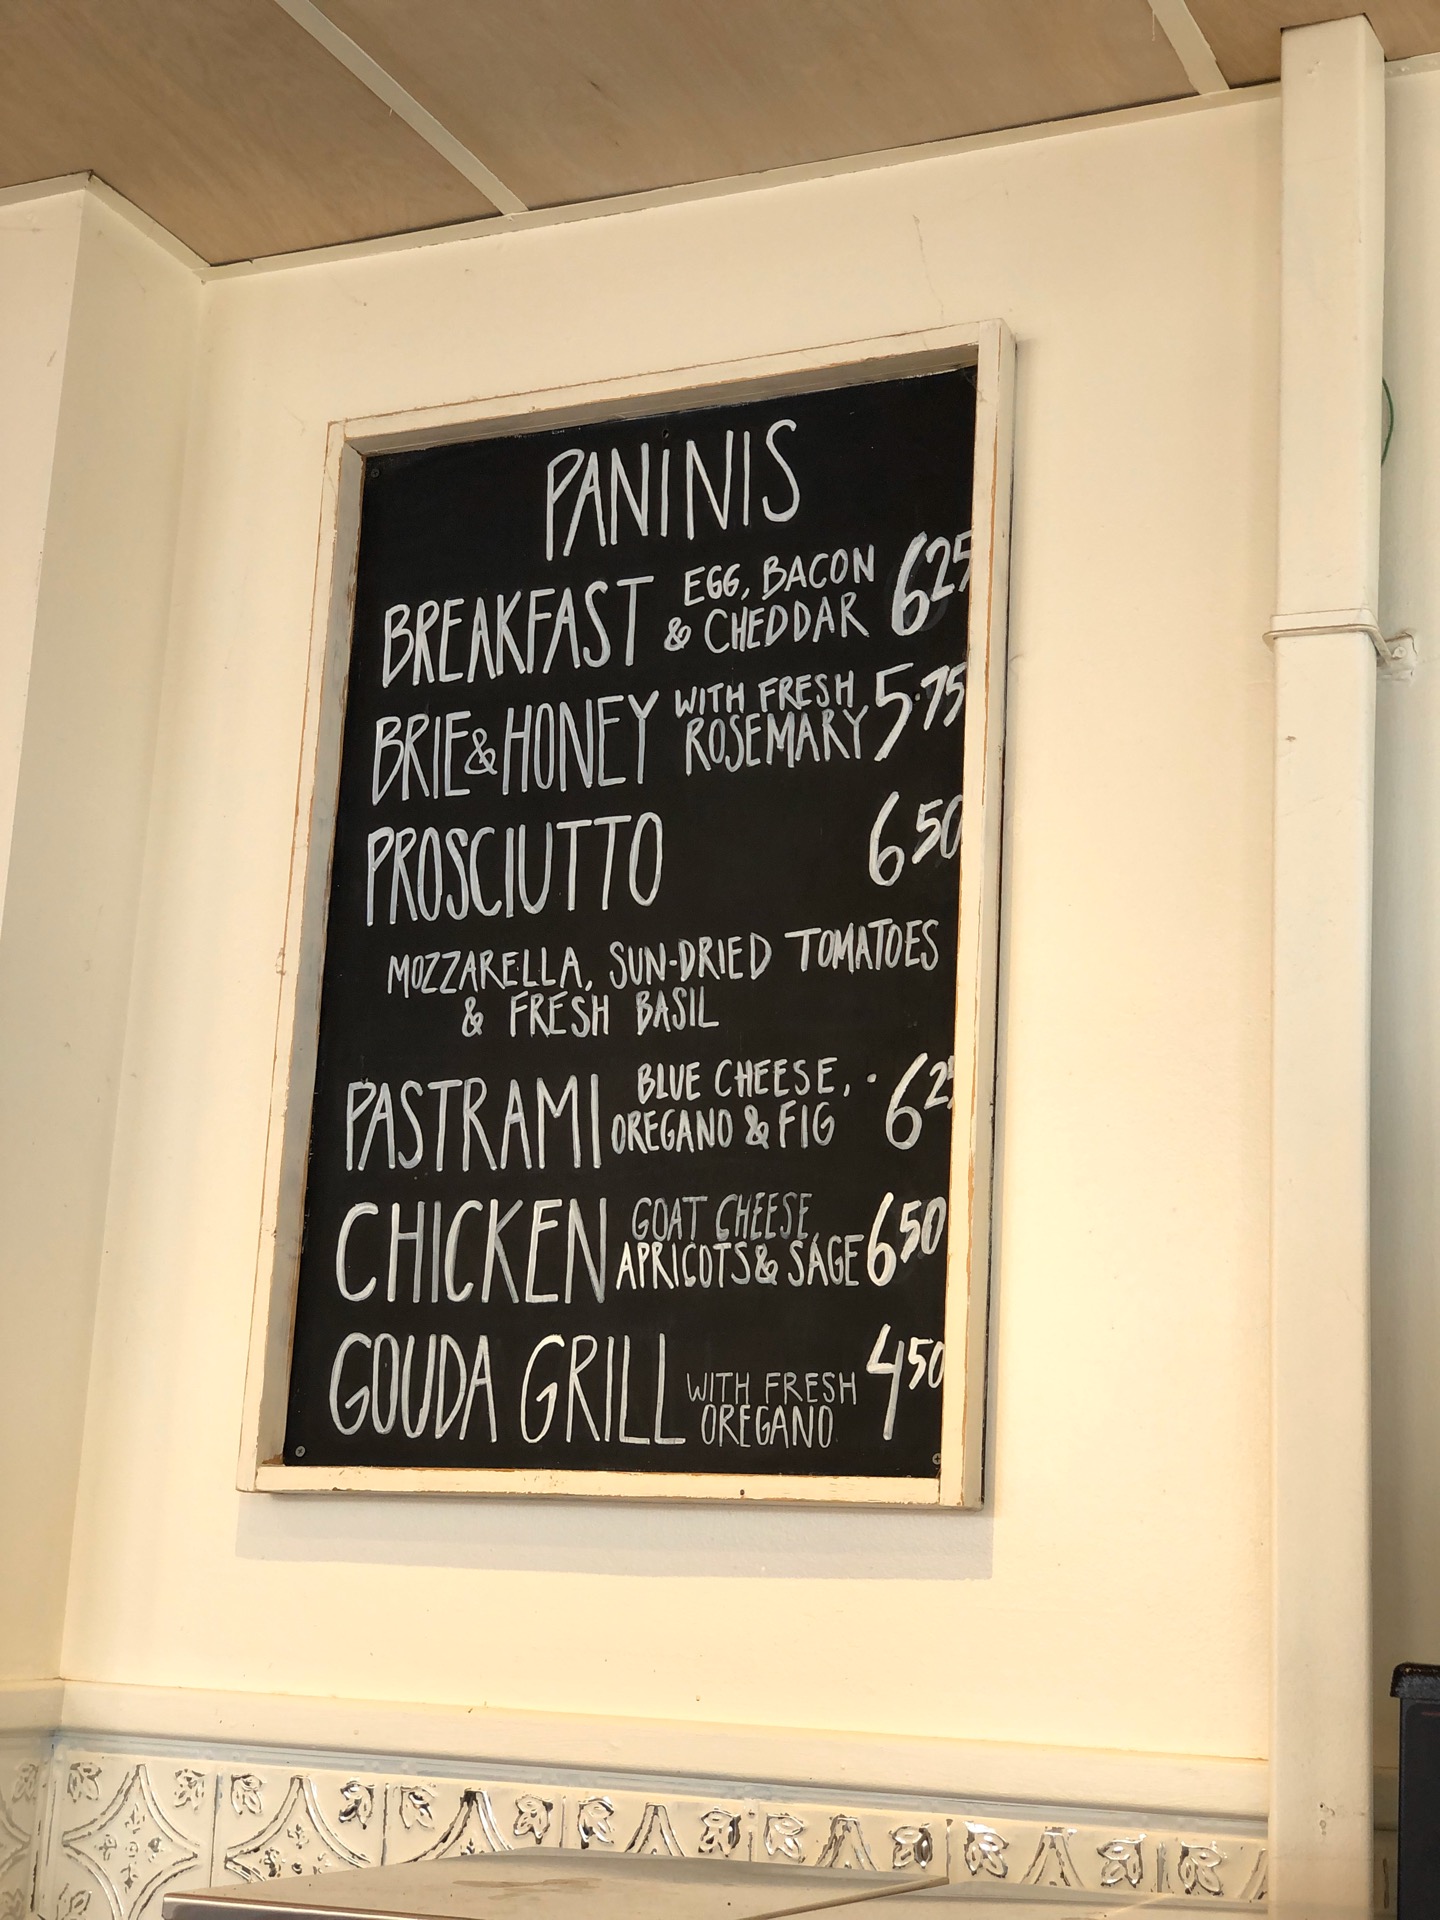 PANINIS
BREAKFAST EGG, BACON & CHEDDAR 625
BRIE & HONEY WITH FRESH ROSEMARY 5.75
PROSCIUTTO 650
MOZZARELLA, SUN-DRIED TOMATOES
& FRESH BASIL
PASTRAMI BLUE CHEESE, OREGANO & FIG 625
CHICKEN GOAT CHEESE, APRICOTS & SAGE 650
GOUDA GRILL WITH FRESH OREGANO 450